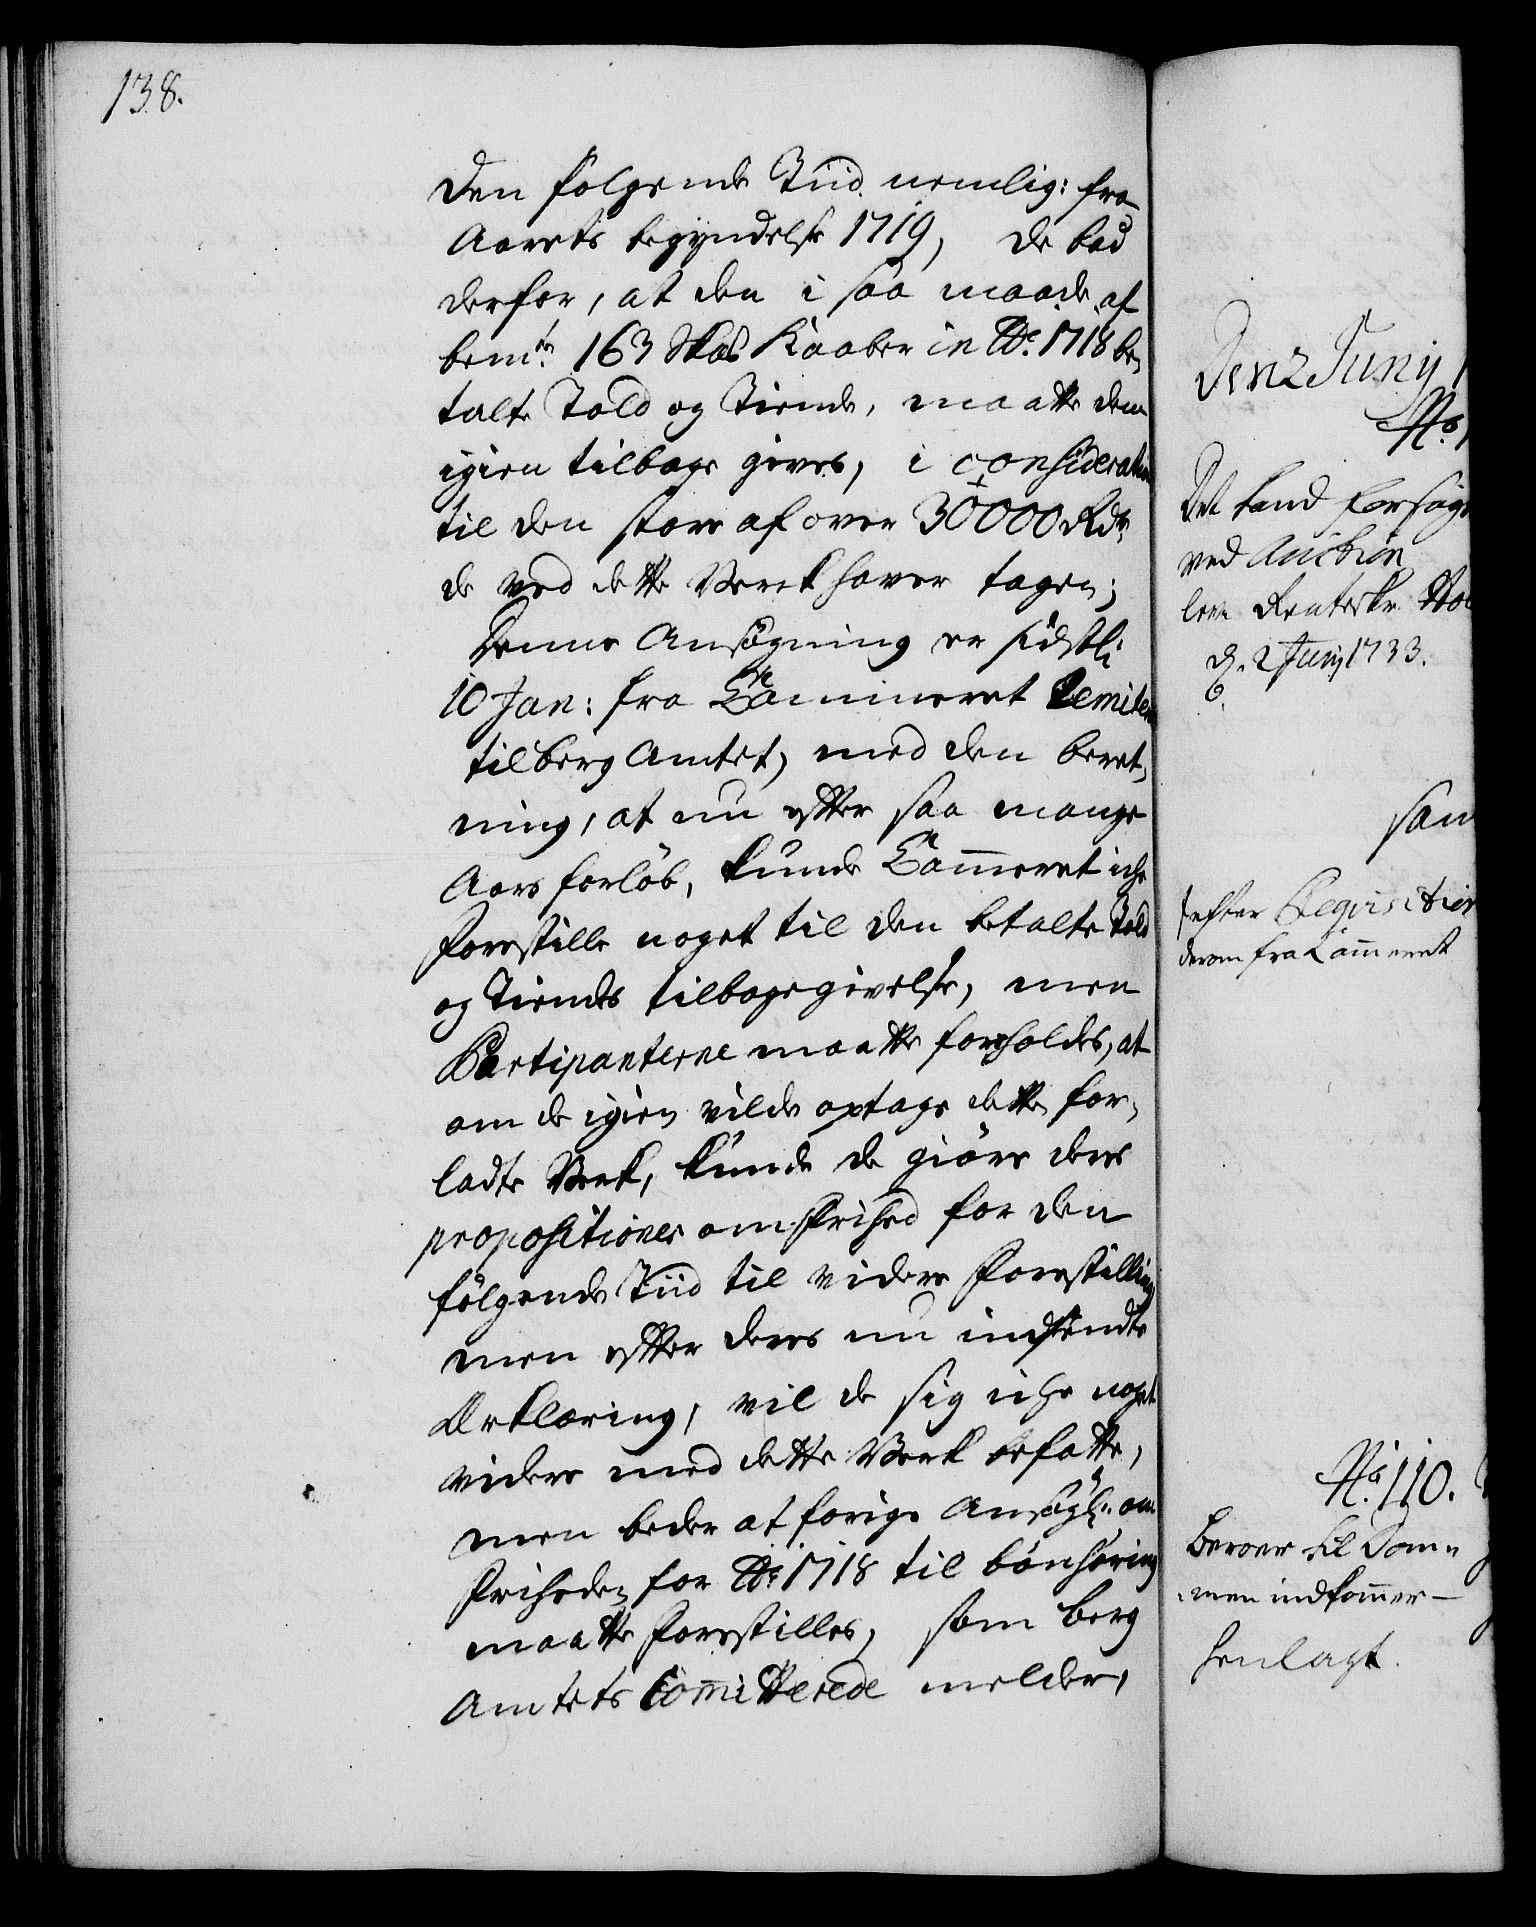 138.
den følgende Tiid nemlig: fra
Aarets begyndelse 1719, de bad
derfor, at den i saa maade af
bemte 163 Sk℔ Kaaber in Ao. 1718 be¬
talte Told og Tiende, maatte dem
igien tilbage gives, i consideration
til den store af over 30000 Rdr.
de ved dette Verck haver tagen;
Denne Ansøgning er sidstl:
10 Jan: fra Cammeret Remitteret
til berg Amtet, med den beret¬
ning, at nu efter saa mange
Aars forløb, kunde Cammeret iche
forestille noget til den betalte Told
og Tiendes tilbagegivelse, men
Participanterne maatte foreholdes, at
om de igien vilde optage dette for¬
ladte Verk, kunde de giøre deres
propositioner om frihed for den
følgende Tiid til videre forestilling
men efter deres nu indsendte
Erklæring, vil de sig iche noget
videre med dette Verk befatte,
men beder at forige Ansøgn: om
friheden for Ao. 1718 til bønhøring
maatte forestilles, som berg
Amtets Committerede melder,
Den 2 Junij 1
No. 1
Det kand forsøges
ved Auction
Renteskr.
d. 2 Junij 1733.
sam
efter Reqvisition
derom fra Cammeret
No. 110.
beroer til Dom¬
men indkommer —
henlagt.